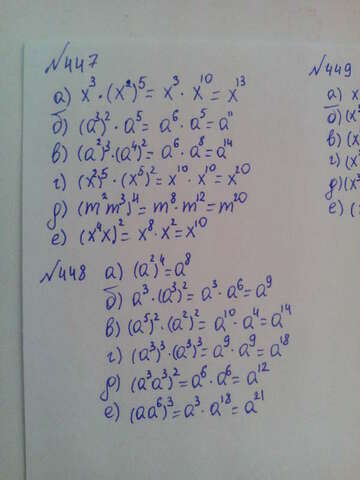 №447
а) x³·(x²)⁵=x³·x¹⁰=x¹³
б) (a³)²·a⁵=a⁶·a⁵=a¹¹
в) (a²)³·(a⁴)²=a⁶·a⁸=a¹⁴
г) (x²)⁵·(x⁵)²=x¹⁰·x¹⁰=x²⁰
д) (m²m³)⁴=m⁸·m¹²=m²⁰
е) (x⁴x)²=x⁸·x²=x¹⁰
№448 а) (a²)⁴=a⁸
б) a³·(a³)²=a³·a⁶=a⁹
в) (a⁵)²·(a²)²=a¹⁰·a⁴=a¹⁴
г) (a³)³·(a³)³=a⁹·a⁹=a¹⁸
д) (a³a³)²=a⁶·a⁶=a¹²
е) (aa⁶)³=a³·a¹⁸=a²¹
№449
а) x
б) (x
в) (x
г) (x
д) (x
е) (